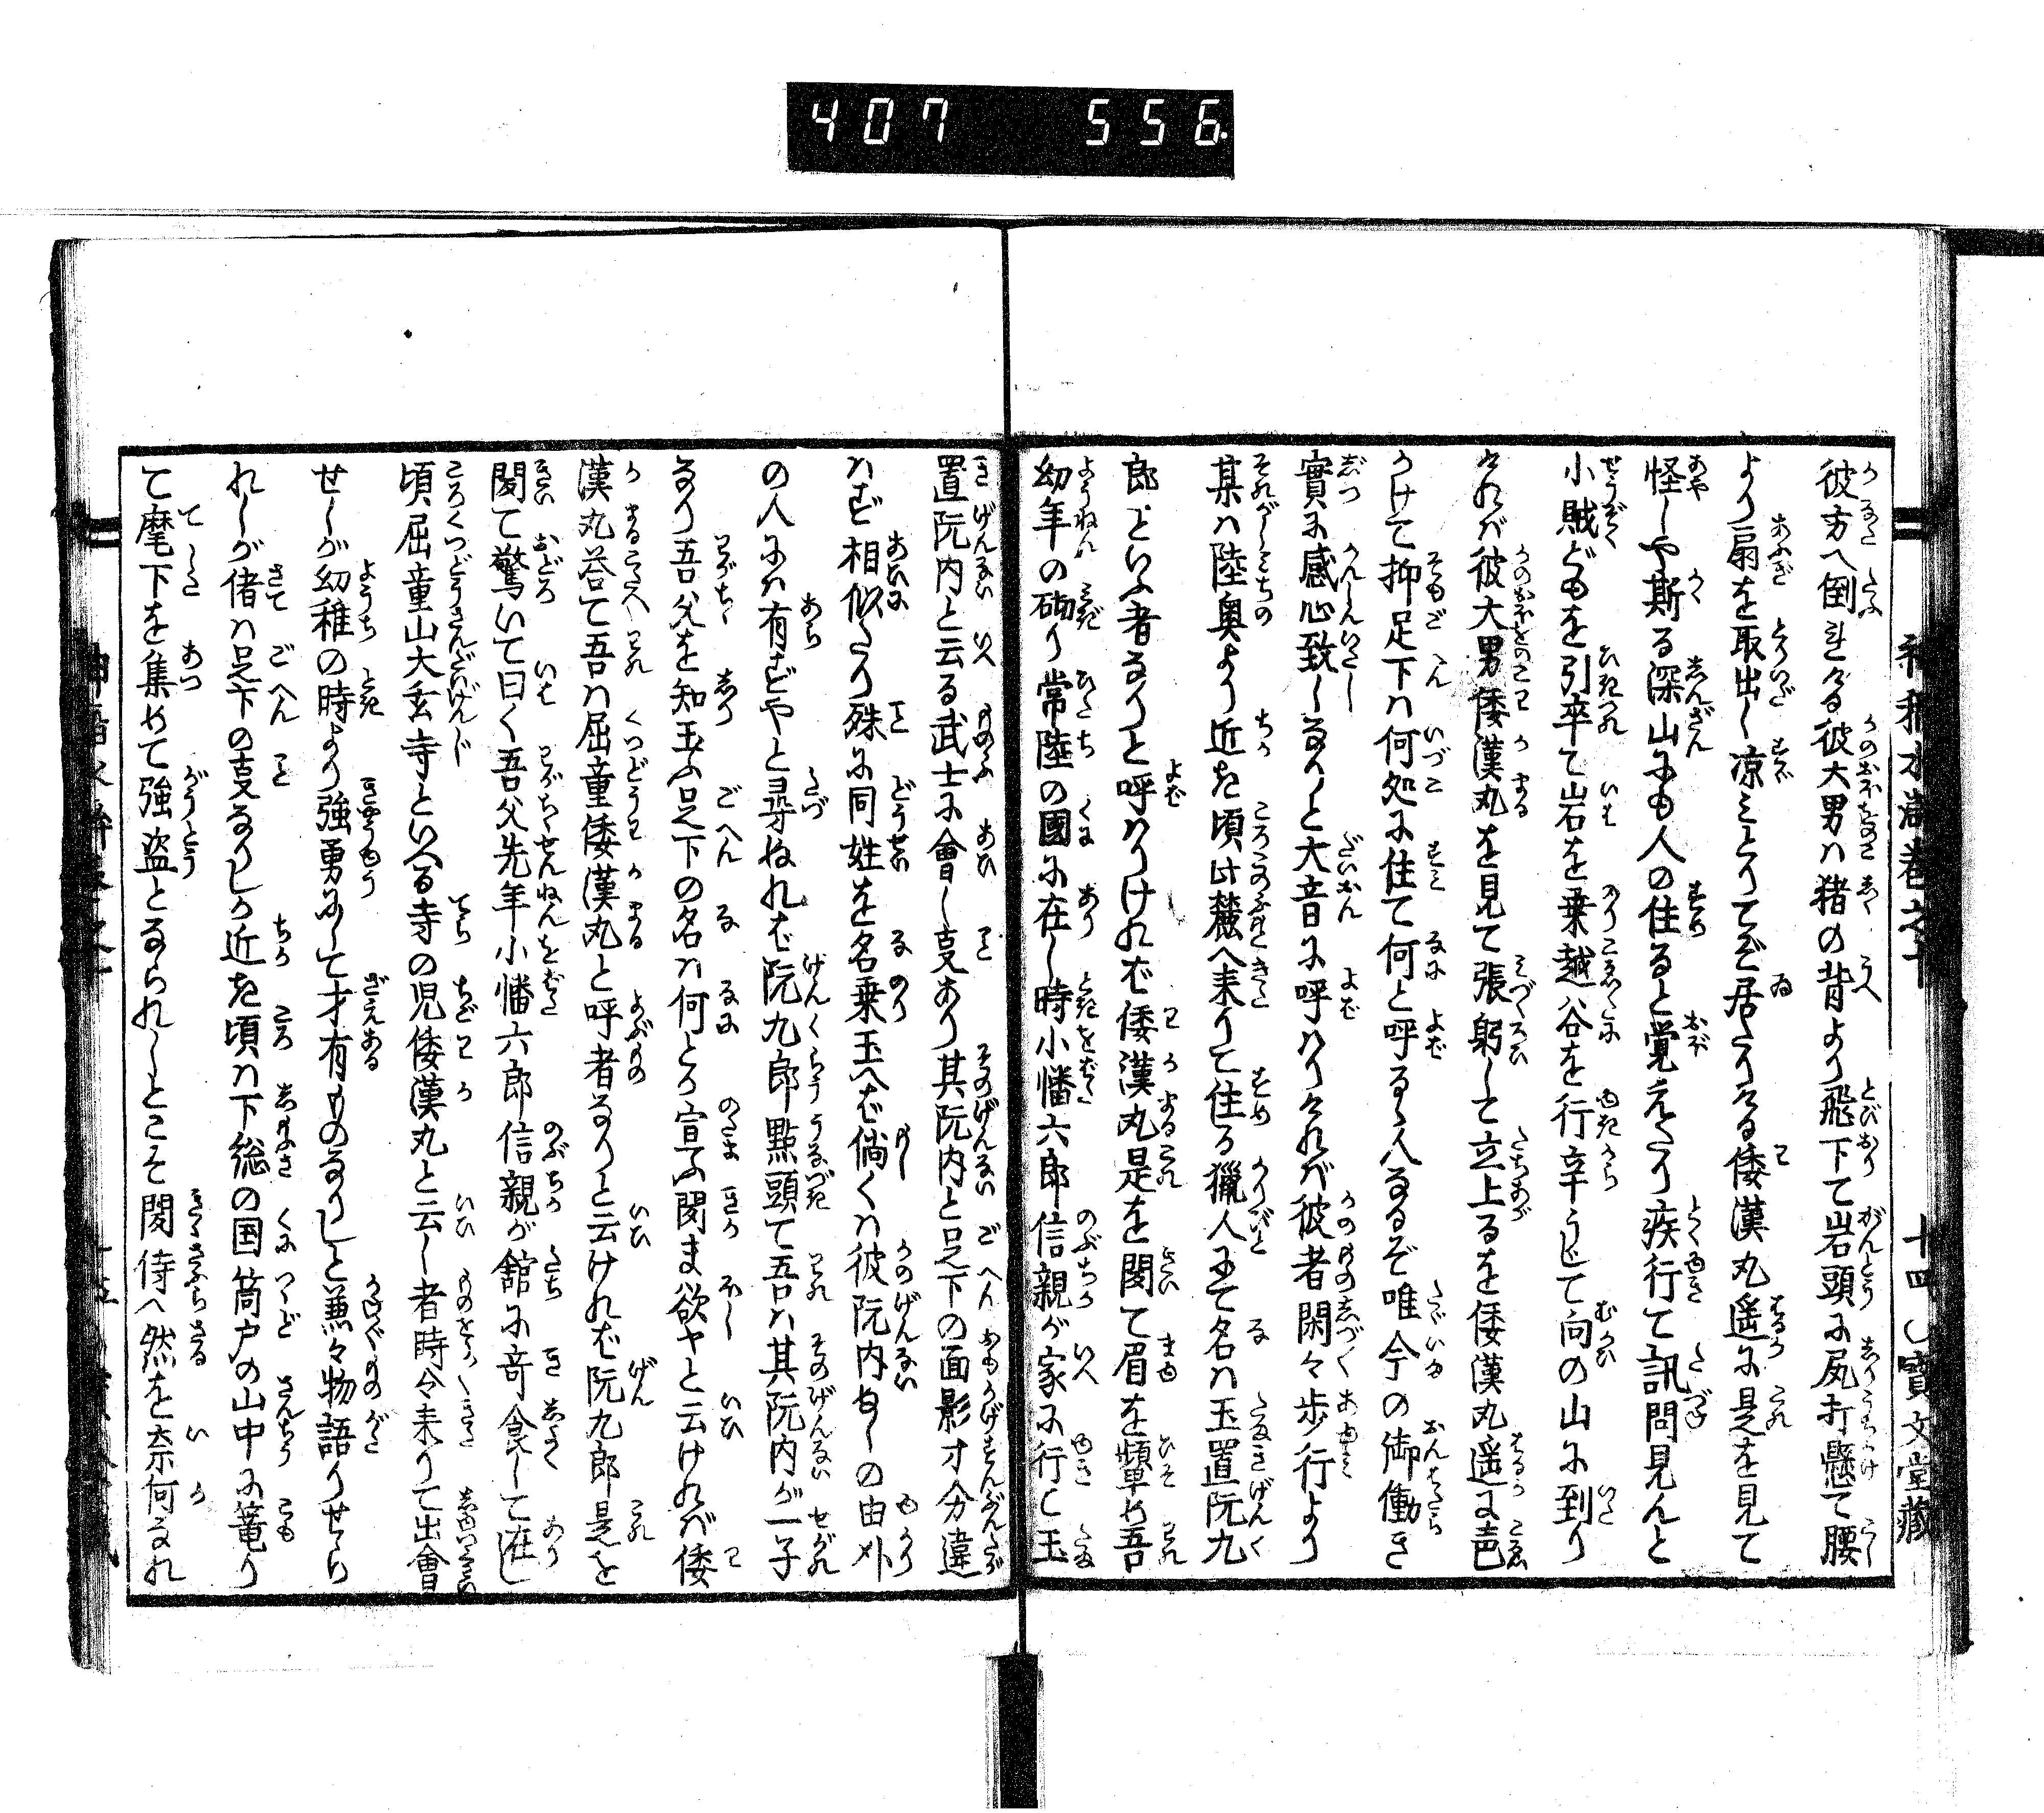 407 556.
彼方へ倒れける彼大男ハ猪の背より飛下て岩頭に尻打懸て腰
より扇を取出し凉ミとりてぞ居たりける倭漢丸遥に是を見て
怪しや斯る深山にも人の住ると覚えたり疾行て訊問見んと
小賊どもを引卒て岩を乗越谷を行辛うじて向の山に到り
けれバ彼大男倭漢丸を見て張躬して立上るを倭漢丸遥に声
かけて抑足下ハ何処に住て何と呼るゝ人なるぞ唯今の御働き
實に感心致しなりと大音に呼ハりけれバ彼者閑々歩行より
某ハ陸奥より近き頃此麓へ来りて住る獵人にて名ハ玉置阮九
郎といふ者なりと呼ハりけれバ倭漢丸是を聞て眉を顰め吾
幼年の砌り常陸の國に在し時小幡六郎信親が家に行く玉
置阮内と云る武士に會し支あり其阮内と足下の面影寸分違
ハず相似たり殊に同姓を名乗玉へバ倘くハ彼阮内ぬしの由外
の人にハ有ずやと尋ねれバ阮九郎點頭て吾ハ其阮内が一子
なり吾父を知玉ふ足下の名ハ何とか宣ふ聞ま欲やと云けれバ倭
漢丸答て吾ハ屈童倭漢丸と呼者なりと云けれバ阮九郎是を
聞て驚いて曰く吾父先年小幡六郎信親が舘に寄食して在し
頃屈童山大玄寺といへる寺の児倭漢丸と云し者時々来りて出會
せしが幼稚の時より強勇にして才有ものなりしと兼々物語りせら
れしが偖ハ足下の支なりしか近き頃ハ下総の国筒戸の山中に篭り
て麾下を集めて強盗となられしとこそ聞侍へ然を奈何なれ
十四 寳文堂藏